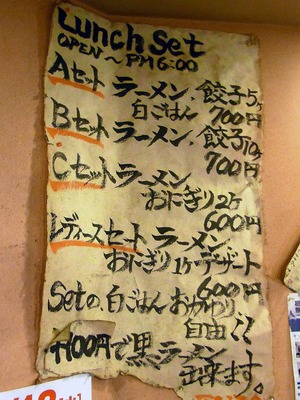 Lunch Set
OPEN～PM6:00
Aセット ラーメン、餃子5ヶ
白ごはん 700円
Bセット ラーメン、餃子10ヶ
700円
Cセット ラーメン
おにぎり2ヶ
600円
レディースセート ラーメン
おにぎり1ケ デザート
600円
Setの、白ごはん おかわり
自由!!
+100円で黒ラーメン
出来ます。